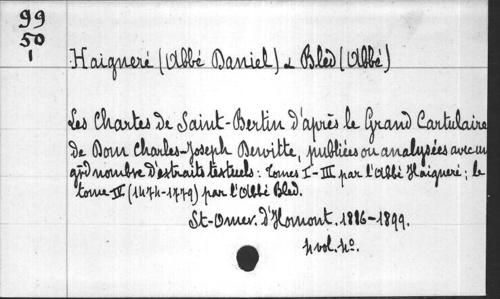 99
50
1
Haigneré (Abbé Daniel) & Bled (Abbé)
Les Chartes de Saint-Bertin d'après le Grand Cartulaire
de Dom Charles-Joseph Dewitte, publiées ou analysées avec un
gd nombre d'extraits textuels: tomes I-III par l'Abbé Haigneré; le
tome IV (1474-1779) par l'Abbé Bled.
St-Omer. D'Homont. 1886-1899.
4 vol. 4o.